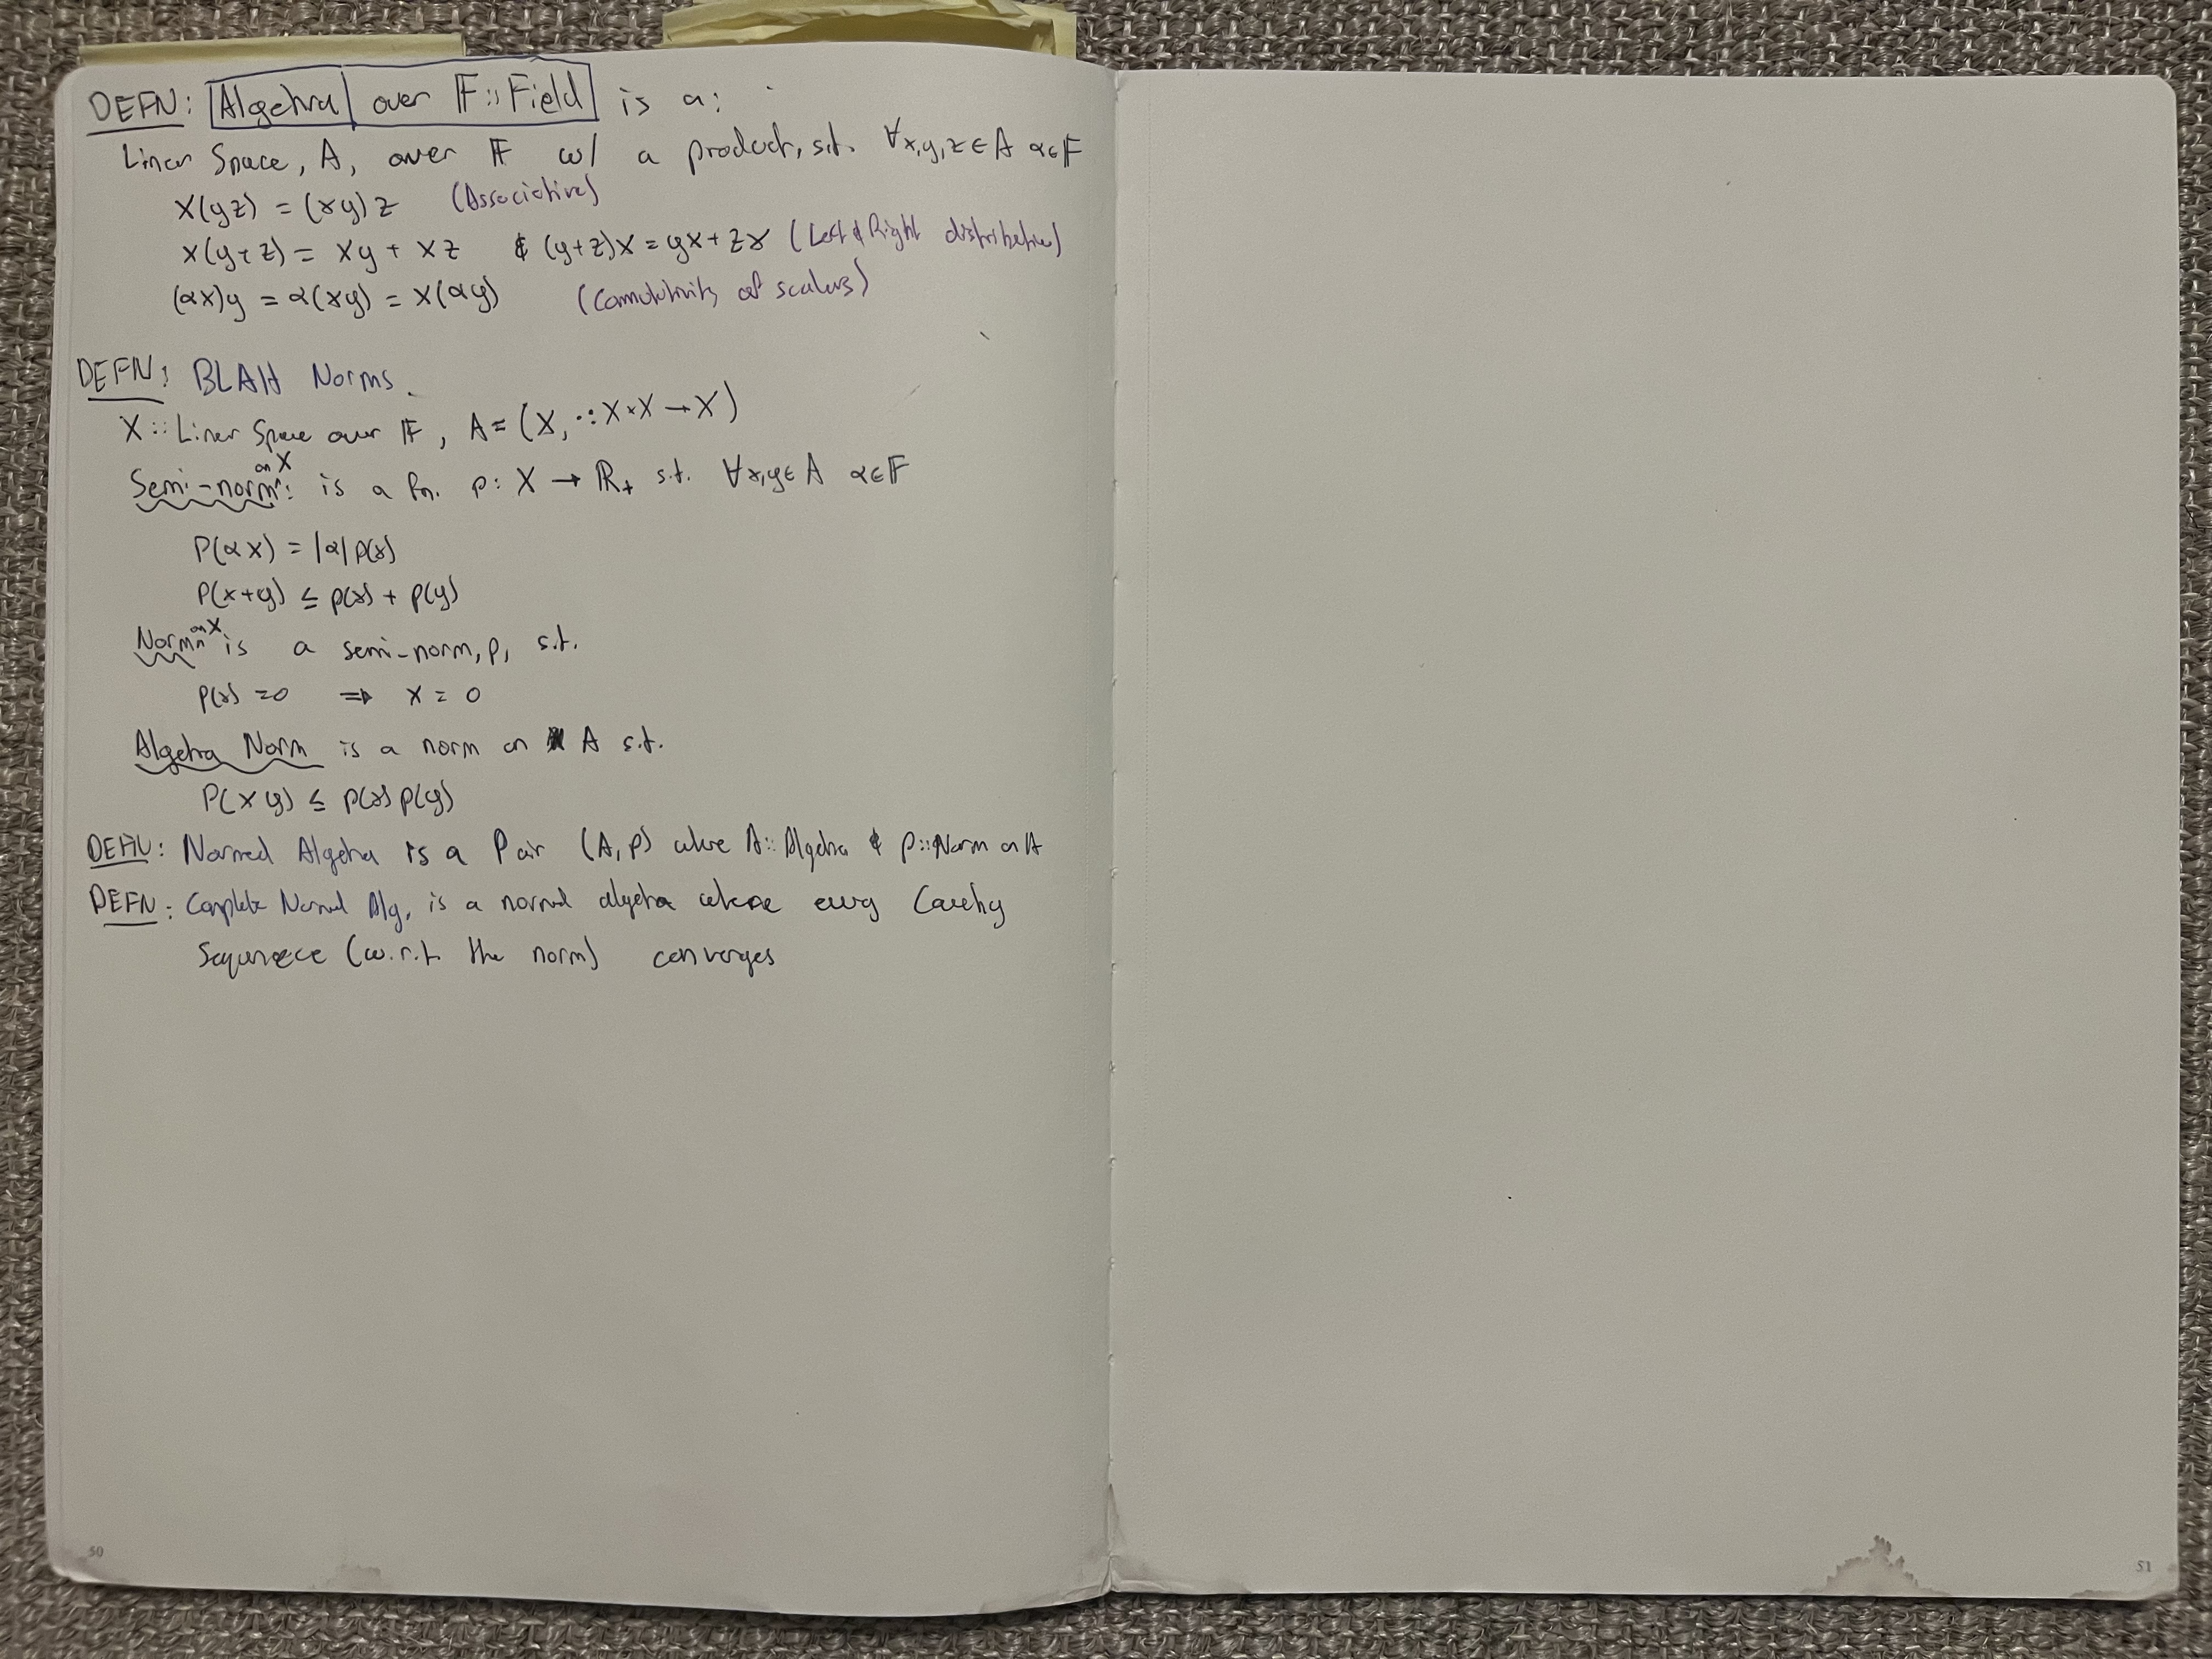 DEFN: Algebra over 𝔽::Field is a:
Linear Space, A, over 𝔽 w/ a product, s.t. ∀x,y,z ∈ A α∈𝔽
x(yz) = (xy)z (Associative)
x(y+z) = xy + xz & (y+z)x = yx + zx (Left & Right distributive)
(αx)y = α(xy) = x(αy) (Commutativity of scalars)
DEFN: BLAH Norms.
X :: Linear Space over 𝔽, A = (X, · : X×X → X)
Semi-norm on X: is a fn. p: X → ℝ₊ s.t. ∀x,y∈A α∈𝔽
P(αx) = |α|p(x)
P(x+y) ≤ p(x) + p(y)
Norm on X is a semi-norm, p, s.t.
p(x) = 0 ⇒ x = 0
Algebra Norm is a norm on A s.t.
P(xy) ≤ p(x)p(y)
DEFN: Normed Algebra is a Pair (A,p) where A::Algebra & p::Norm on A
DEFN: Complete Normed Alg. is a normed algebra where every Cauchy
Sequence (w.r.t. the norm) converges
50
51